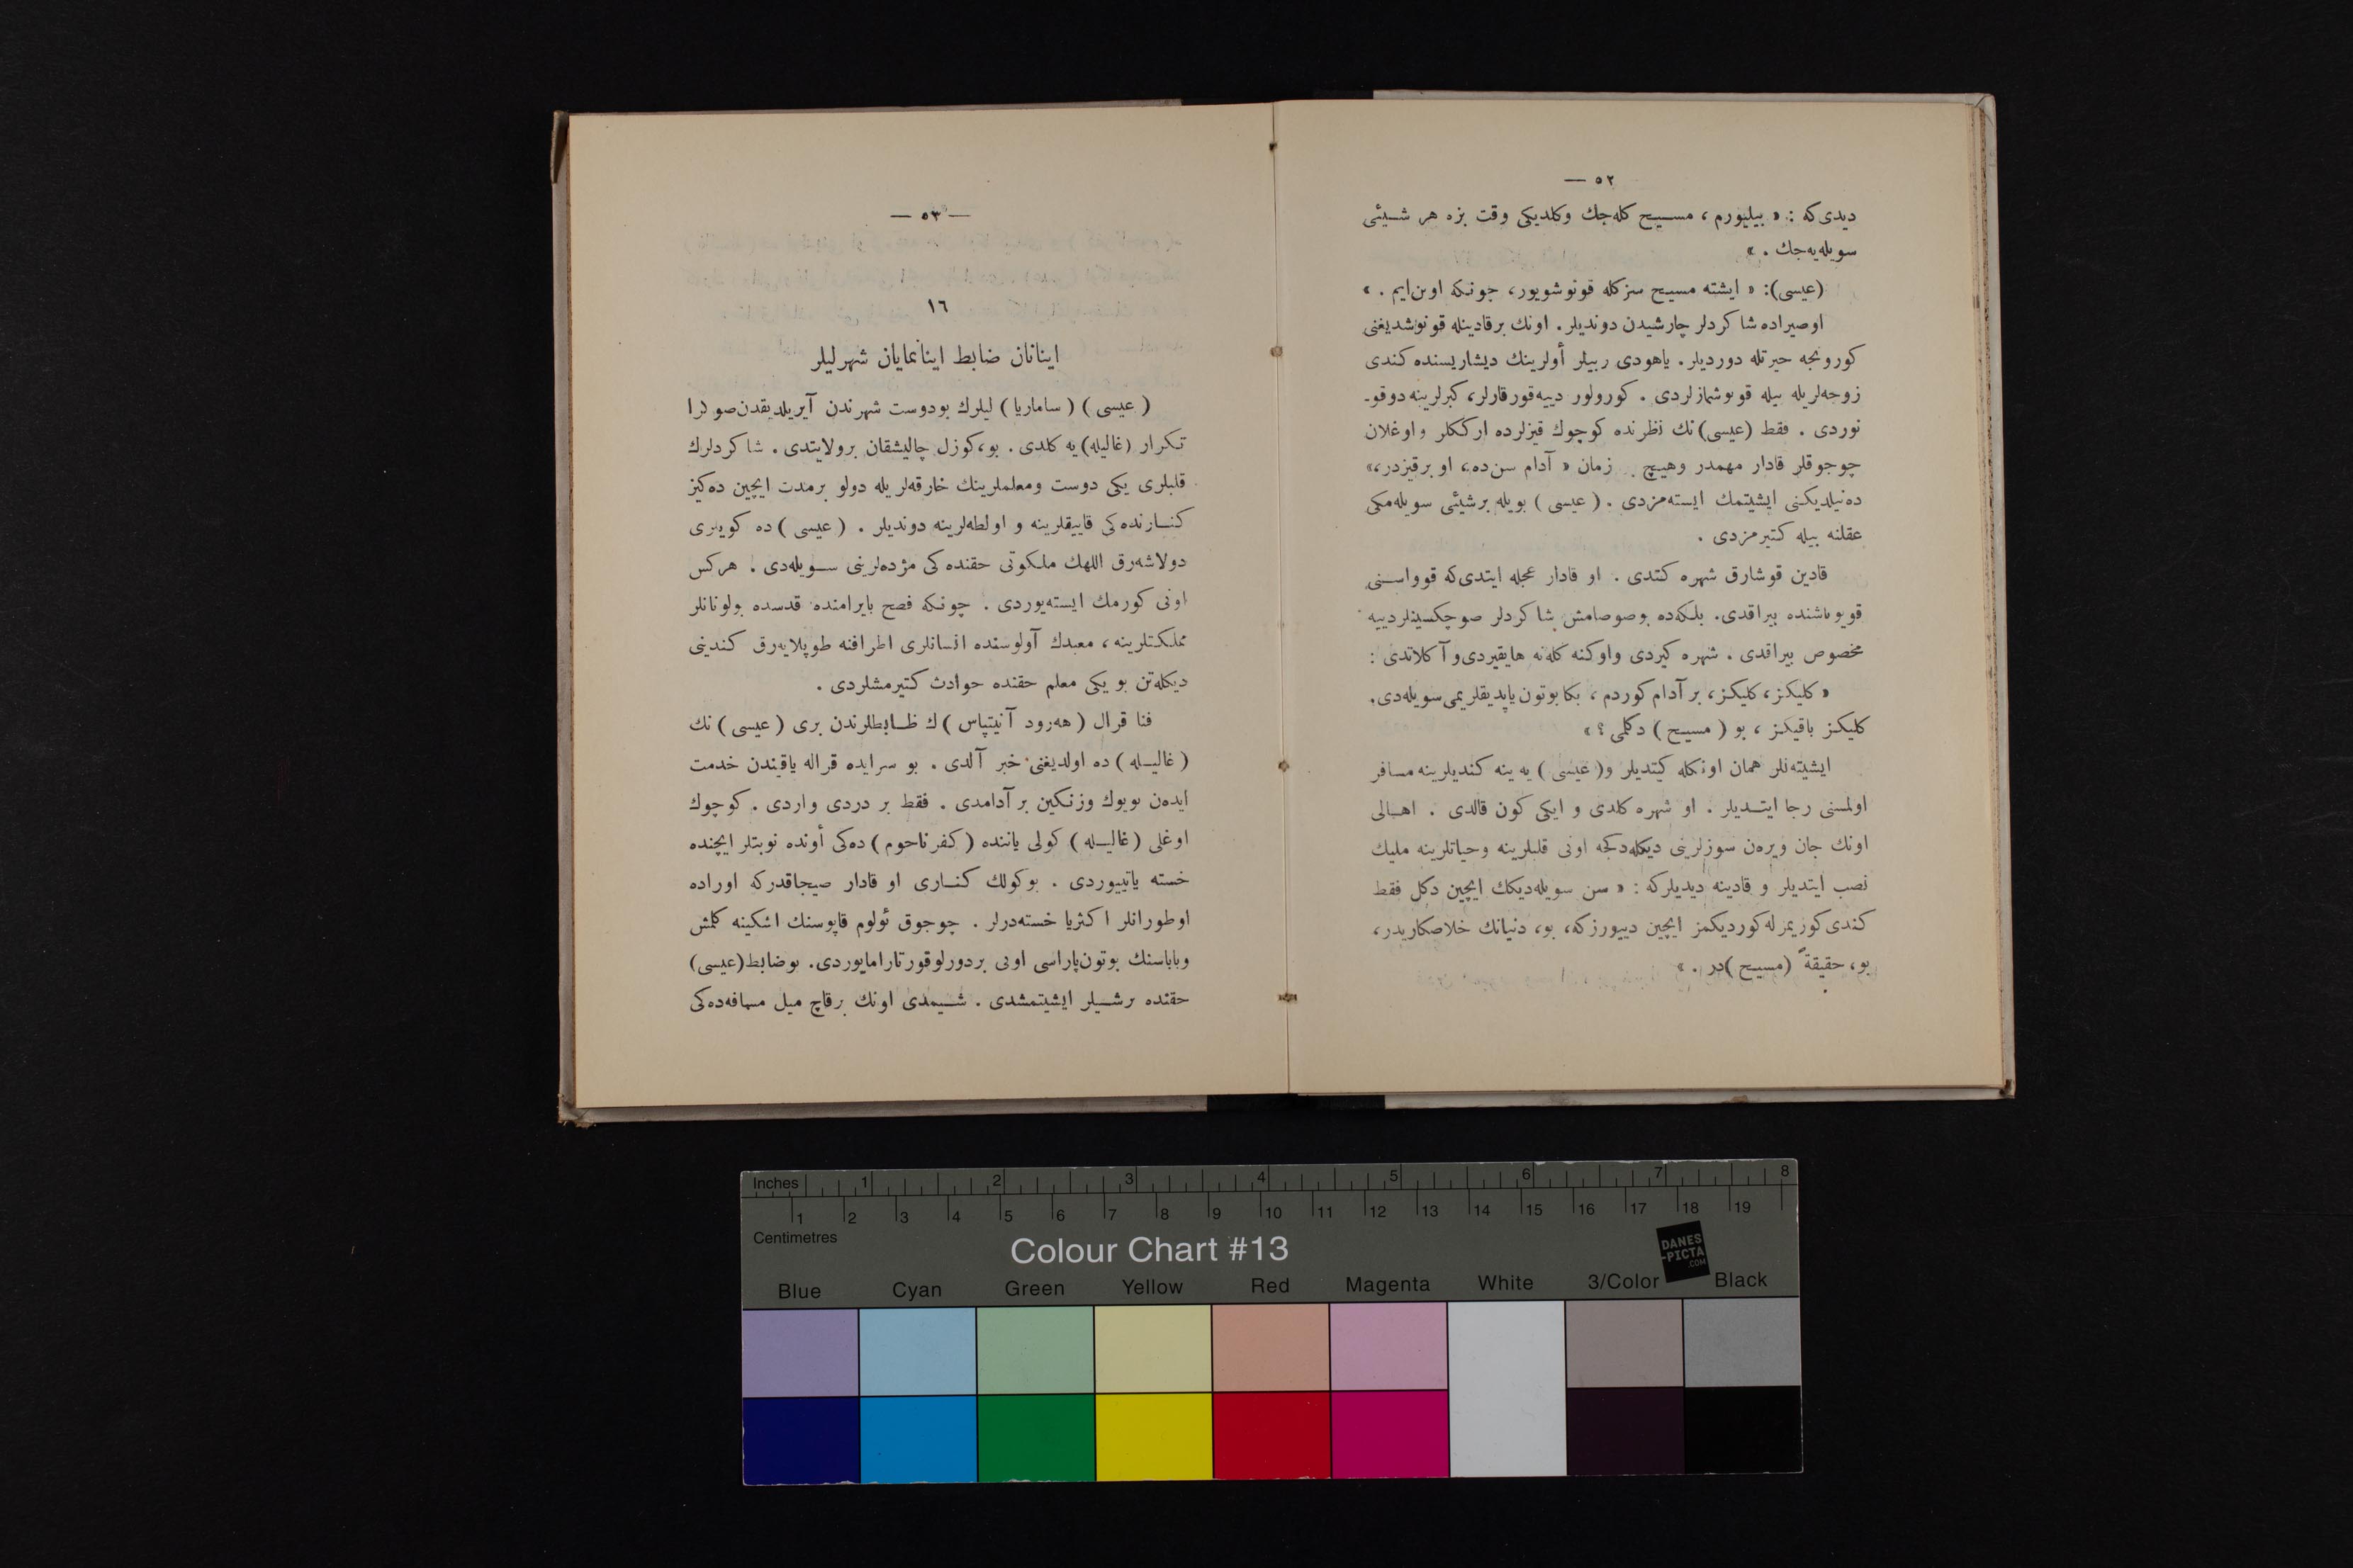 ٥٢ —
دیدی‌که : « بیلیورم ، مسیح کله‌جك وکلدیکی وقت بزه هر شیئی
سویله‌یه‌جك . »
(عیسی): « ایشته مسیح سزکله قونوشویور، جونکه اوبن‌ایم . »
اوصیراده شاکردلر چارشیدن دوندیلر. اونك برقادینله قونوشدیغنی
کورونجه حیرتله دوردیلر. یاهودی ربیلر أولرینك دیشاریسنده کندی
زوجه‌لریله بیله قونوشمازلردی . کورولور دییه‌قورقارلر، کبرلرینه دوقو-
نوردی . فقط (عیسی)نك نظرنده کوچوك قیزلرده ارککلر و اوغلان
چوجوقلر قادار مهمدر وهیچ زمان « آدام سن‌ده، او برقیزدر،»
ده‌نیلدیکنی ایشیتمك ایسته‌مزدی . ( عیسی ) بویله برشیئی سویله‌مکی
عقلنه بیله کتیرمزدی .
قادین قوشارق شهره کتدی . او قادار عجله ایتدی‌که قوواسنی
قویوباشنده بیراقدی. بلکه‌ده بوصوصامش شاکردلر صوچکسینلردییه
مخصوص بیراقدی . شهره کیردی واوکنه کله‌نه هایقیردی‌و آکلاتدی :
« کلیکز، کلیکز، بر آدام کوردم ، بکا بوتون یاپدیقلریمی‌سویله‌دی.
کلیکز باقیکز ، بو ( مسیح ) دکلمی ؟ »
ایشیته‌نلر همان اونکله کیتدیلر و( عیسی ) یه ینه کندیلرینه مسافر
اولمسنی رجا ایتدیلر . او شهره کلدی و ایکی کون قالدی . اهالی
اونك جان ویره‌ن سوزلرینی دیکله‌دکجه اونی قلبلرینه وحیاتلرینه ملیك
نصب ایتدیلر و قادینه دیدیلرکه : « سن سویله‌دیکك ایچین دکل فقط
کندی‌کوزیمزله‌کوردیکمز ایچین دییورزکه، بو، دنیانك خلاصکاریدر،
بو، حقیقةً (مسیح )در . »
— ٥٣ —
١٦
اینانان ضابط اینانمایان شهرلیلر
( عیسی ) ( ساماریا ) لیلرك بودوست شهرندن آیریلدیقدن‌صوکرا
تکرار (غالیله)یه کلدی . بو،کوزل چالیشقان برولایتدی . شاکردلرك
قلبلری یکی دوست ومعلملرینك خارقه‌لریله دولو برمدت ایچین ده‌کیز
کنارنده‌کی قاییقلرینه و اولطه‌لرینه دوندیلر . ( عیسی ) ده کویلری
دولاشه‌رق اللهك ملکوتی حقنده کی مژده‌لرینی سویله‌دی . هرکس
اونی کورمك ایسته‌یوردی . چونکه فصح بایرامنده قدسده بولونانلر
مملکتلرینه ، معبدك آولوسنده انسانلری اطرافنه طوپلایه‌رق کندینی
دیکله‌تن بو یکی معلم حقنده حوادث کتیرمشلردی .
فنا قرال ( هه‌رود آنیتپاس )ك ظابطلرندن بری ( عیسی ) نك
( غالیله ) ده اولدیغنی خبر آلدی . بو سرایده قراله یاقیندن خدمت
ایده‌ن بویوك وزنکین بر آدامدی . فقط بر دردی واردی . کوچوك
اوغلی ( غالیله ) کولی یاننده ( کفرناحوم ) ده‌کی أونده نوبتلر ایچنده
خسته یاتییوردی . بوکولك کناری او قادار صیجاقدرکه اوراده
اوطورانلر اکثریا خسته‌درلر . چوجوق ئولوم قاپوسنك اشکینه کلمش
وباباسنك بوتون‌پاراسی اونی بردورلوقورتارامایوردی. بوضابط(عیسی)
حقنده برشیلر ایشیتمشدی . شیمدی اونك برقاچ میل مسافه‌ده‌کی
Inches 1 2 3 4 5 6 7 8
1 2 3 4 5 6 7 8 9 10 11 12 13 14 15 16 17 18 19
Centimetres
Colour Chart #13
DANES
-PICTA
.COM
Blue Cyan Green Yellow Red Magenta White 3/Color Black